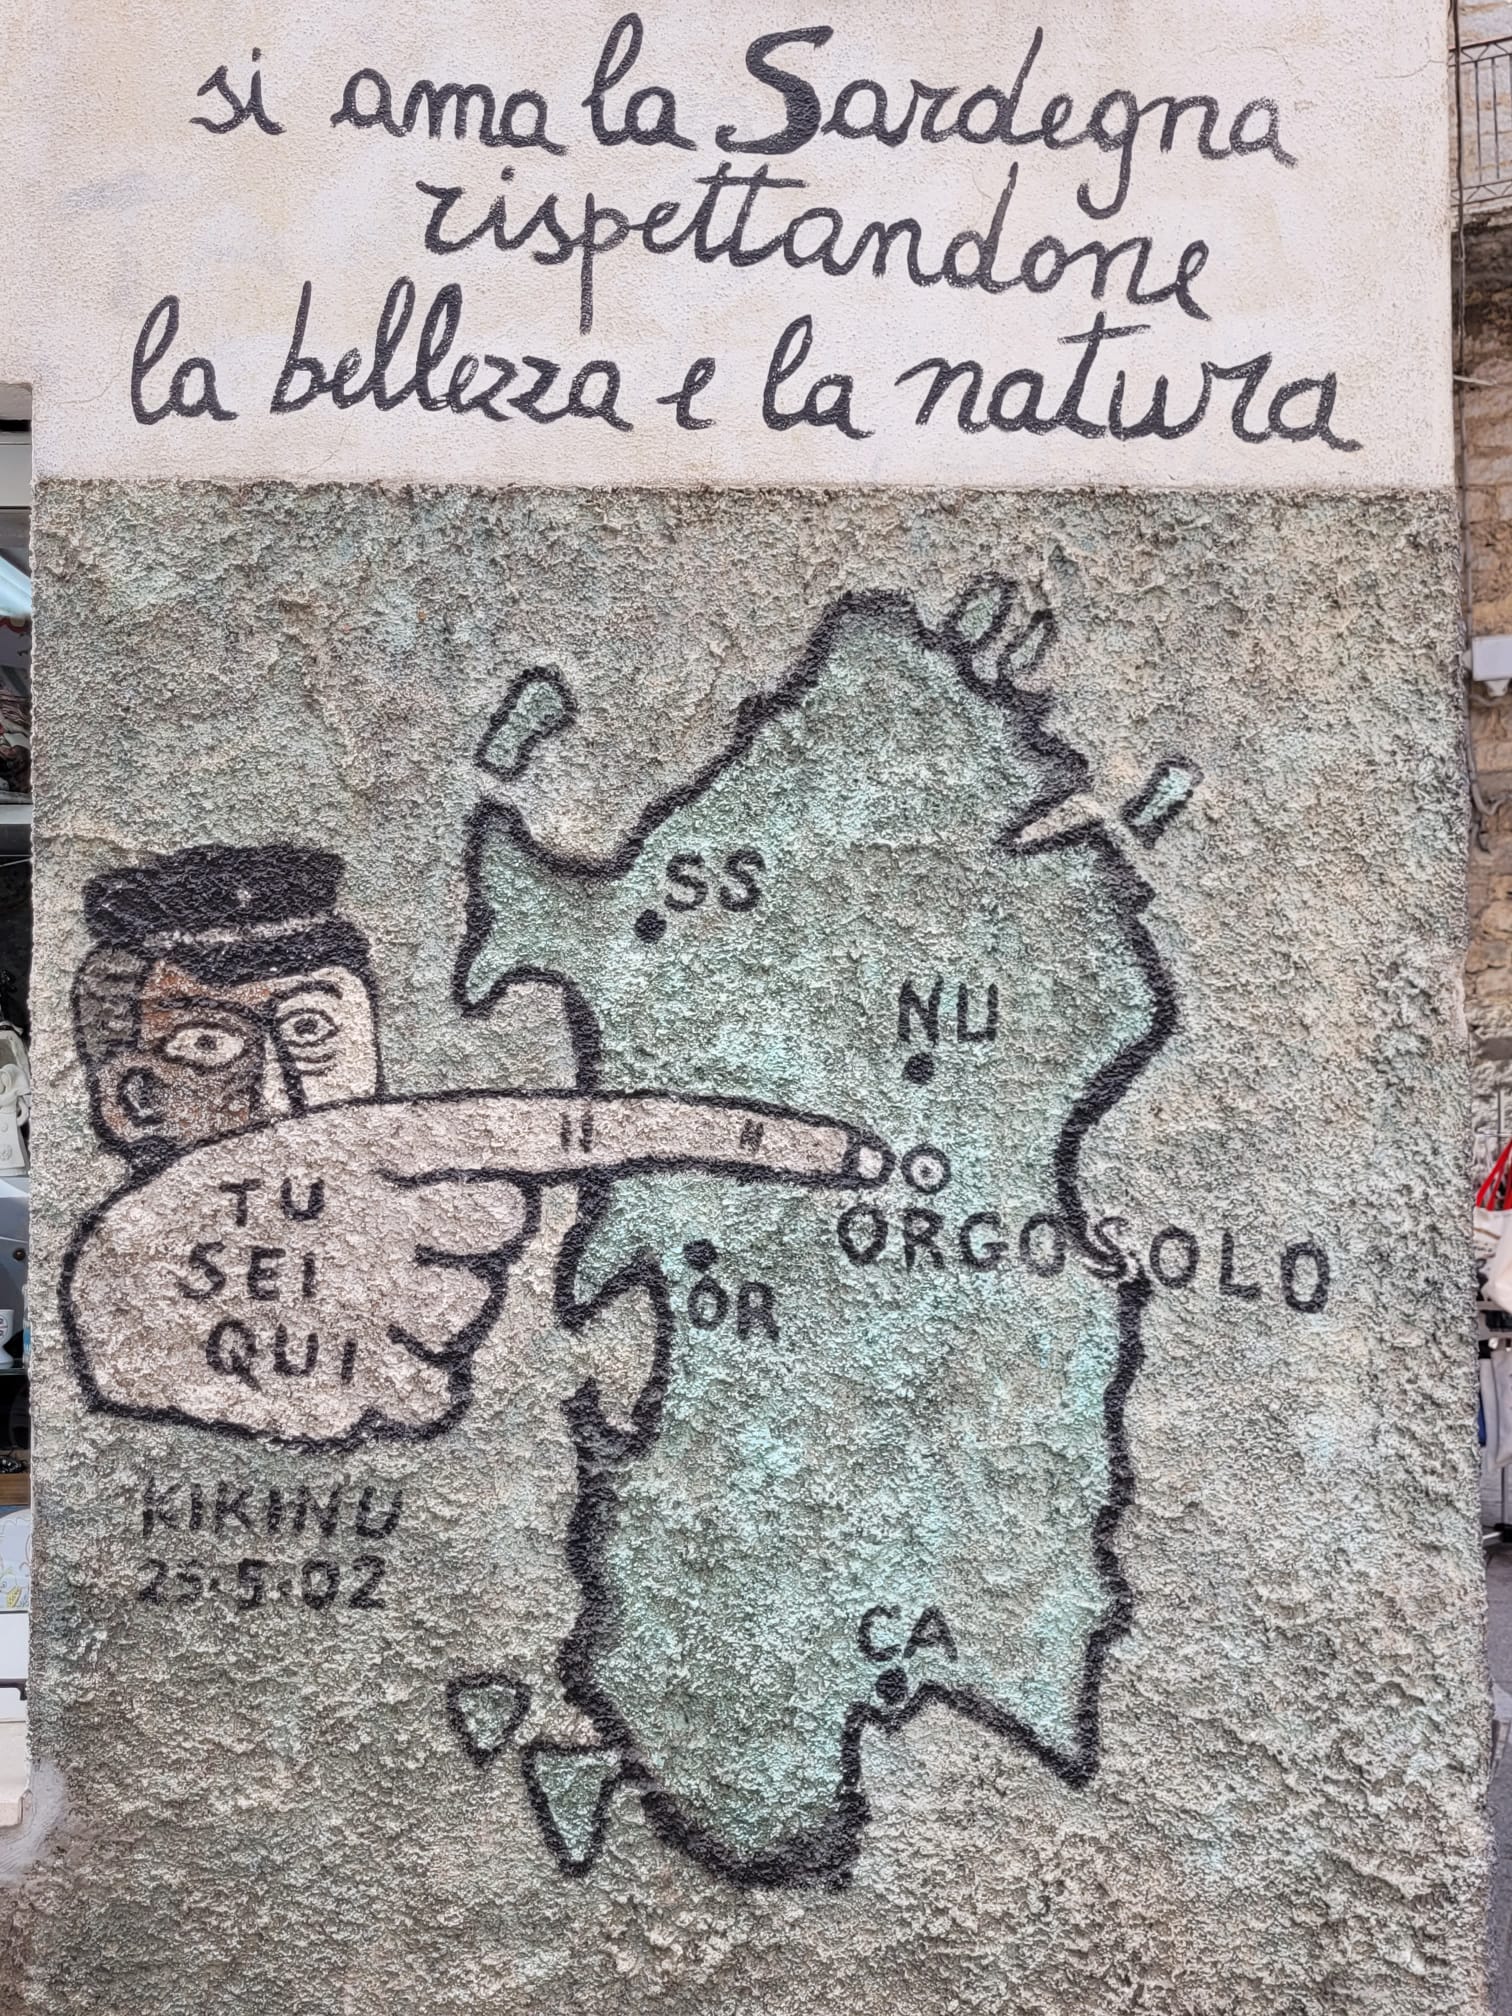 si ama la Sardegna
rispettandone
la bellezza e la natura
SS
NU
TU
SEI
QUI
ORGOSOLO
OR
KIKINU
25·5·02
CA